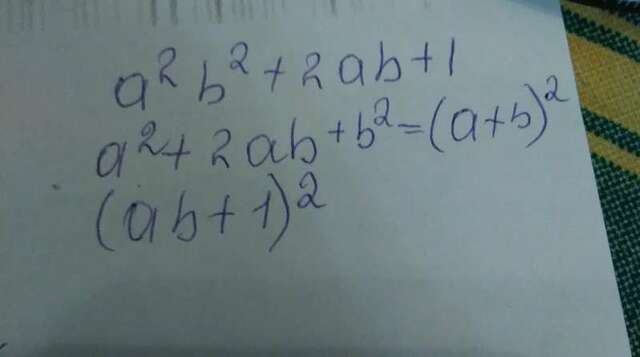 a²b²+2ab+1
a²+2ab+b²=(a+b)²
(ab+1)²